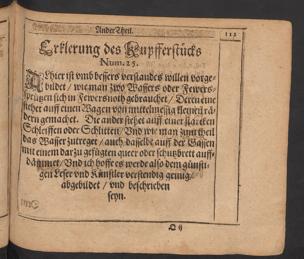 Ander Theil.
111
Erklerung des Kupfferstücks
Num. 25.
Alhier ist vmb bessers verstandes willen vorge-
bildet / wie man zwo Wassers oder Fewers-
sprützen sich in Fewersnoth gebrauchet / Deren eine
stehet auff einen Wagen von mittelmessig kleinen rä-
dern gemachet. Die ander stehet auff einer starcken
Schleiffen oder Schlitten / Vnd wie man zum theil
das Wasser zutreget / auch dasselbe auff der Gassen
mit einem darzu gefügten queer oder schutzbrett auff-
dämmet / Vnd ich hoffe es werde also dem günsti-
gen Leser vnd Künstler verstendig genug
abgebildet / vnd beschrieben
seyn.